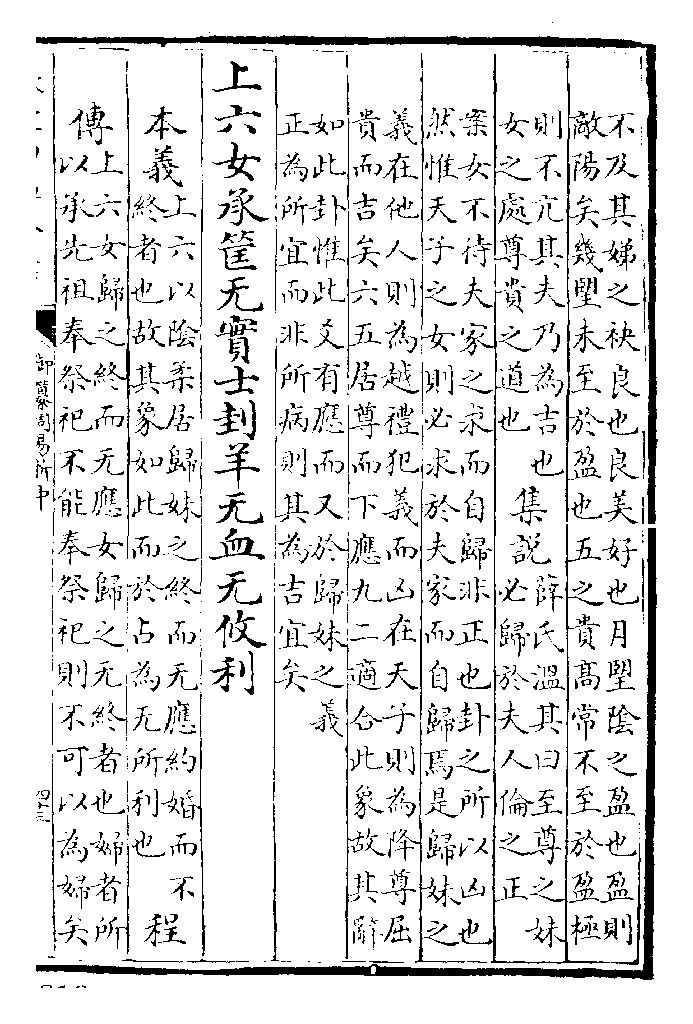 不及其娣之袂良也良美好也月朢陰之盈也盈則
敵陽矣幾朢未至於盈也五之貴髙常不至於盈極
則不亢其夫乃為吉也　集
女之處尊貴之道也　說
薛氏溫其曰至尊之妹
必歸於夫人倫之正
案女不待夫家之求而自歸非正也卦之所以凶也
然惟天子之女則必求於夫家而自歸焉是歸妹之
義在他人則為越禮犯義而凶在天子則為降尊屈
貴而吉矣六五居尊而下應九二適合此象故其辭
如此卦惟此爻有應而又於歸妹之義
正為所宜而非所病則其為吉宜矣
上六女承筐无實士刲羊无血无攸利
本義上六以陰柔居歸妹之終而无應約婚而不
終者也故其象如此而於占為无所利也　程
傳上六女歸之終而无應女歸之无終者也婦者所
以承先祖奉祭祀不能奉祭祀則不可以為婦矣
御纂周易折中
四十三